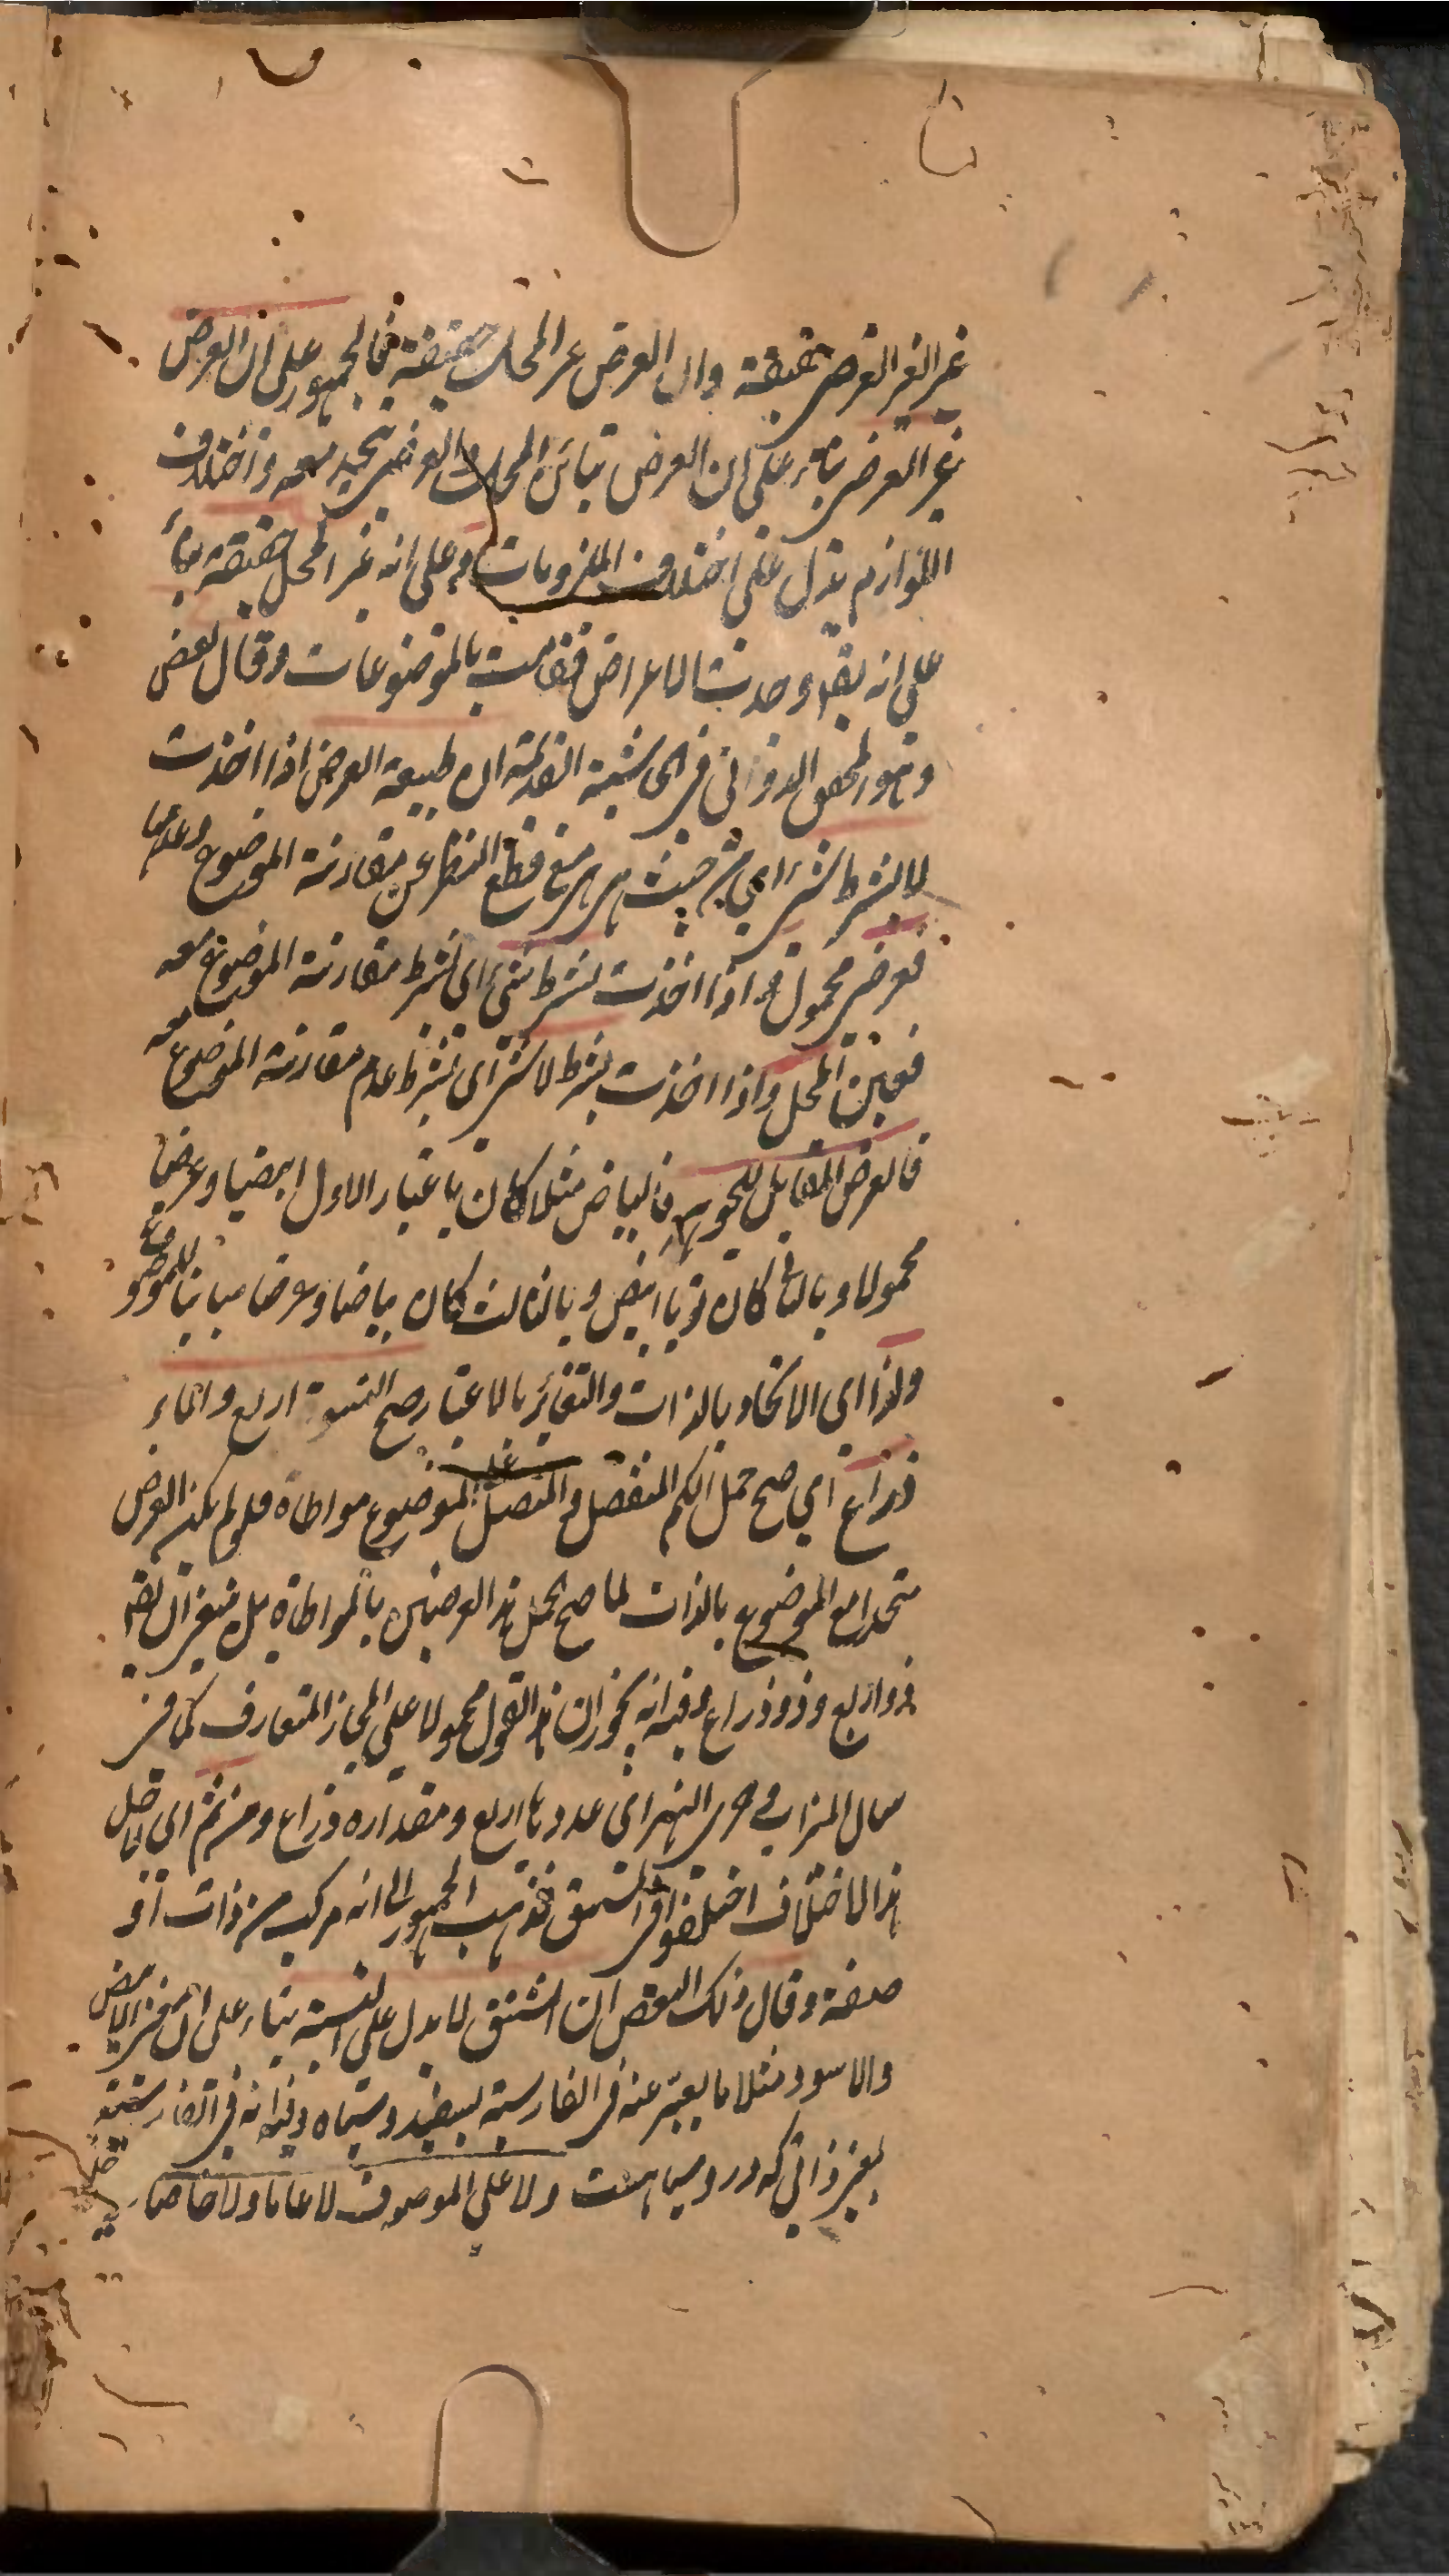 غير العرضي حقيقة وان العرض غير المحل حقيقة فالجمهور على ان العرض
غير العرضي بناء على ان العرض تباين المحل والعرضي يتحد معه واختلاف
اللوازم يدل على اختلاف الملزومات وعلى انه غير المحل حقيقة بناء
على انه يقال وجدت الاعراض فقامت بالموضوعات وقال بعض
وهو المحقق الدواني في الحاشية القديمة ان طبيعة العرض اذا اخذت
لا بشرط شيء اي من حيث هي هي مع قطع النظر عن مقارنة الموضوع وعدمها
فعرضي محمول واذا اخذت بشرط شيء اي بشرط مقارنة الموضوع معه
فعين المحل واذا اخذت بشرط لا شيء اي بشرط عدم مقارنة الموضوع معه
فالعرض المقابل للجوهر فالبياض مثلا كان باعتبار الاول ابيضا وعرضيا
محمولا وبالثاني كان ثوبا ابيض وبالثالث كان بياضا وعرضا مباينا للموضوع
ولذا اي الاتحاد بالذات والتغاير بالاعتبار صح النسوة اربع والماء
ذراع اي صح حمل الكم المنفصل والمتصل على الموضوع مواطاة فلو لم يكن العرض
متحدا مع الموضوع بالذات لما صح حمل هذا العرضين بالمواطاة بل ينبغي ان يقال
ذو اربع وذو ذراع وفيه انه يجوز ان هذا القول محمولا على المجاز المتعارف كما في
سال الميزاب وجرى النهر اي عددها اربع ومقداره ذراع ومن ثم اي لاجل
هذا الاختلاف اختلفوا في المشتق فذهب الجمهور الى انه مركب من ذات او
صفة وقال ذلك البعض ان المشتق لا يدل على النسبة بناء على ان معنى الابيض
والاسود مثلا ما يعبر عنه في الفارسية بسفيد وسياه وفيه انه في الفارسية
بمعنى ذاتي كه در و سياهست ولا على الموصوف لا عاما ولا خاصا